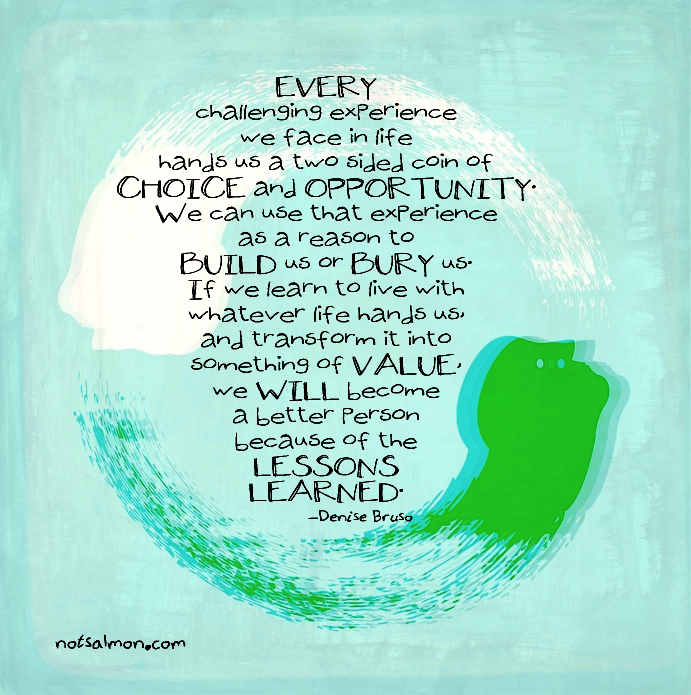 EVERY
challenging experience
we face in life
hands us a two sided coin of
CHOICE and OPPORTUNITY.
We can use that experience
as a reason to
BUILD us or BURY us.
If we learn to live with
whatever life hands us,
and transform it into
something of VALUE,
we WILL become
a better person
because of the
LESSONS
LEARNED.
-Denise Bruso
notsalmon.com